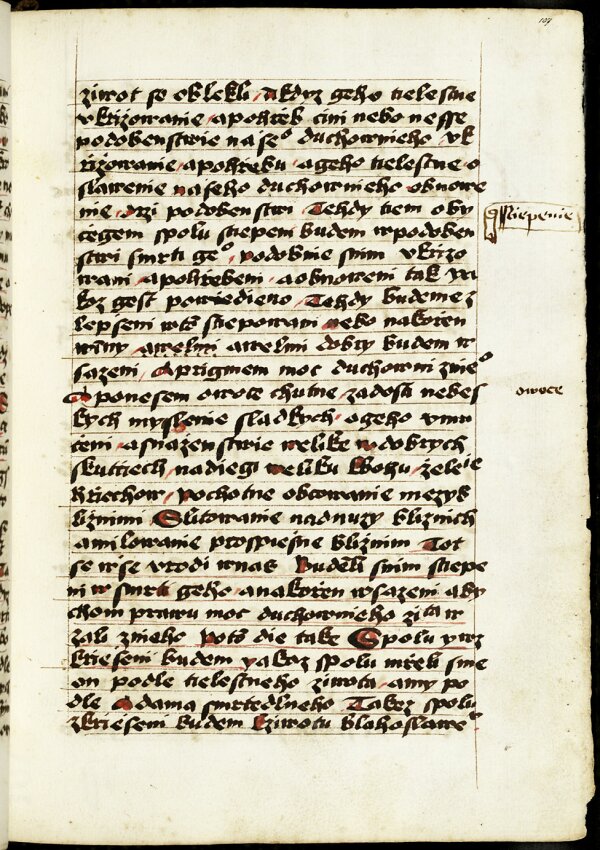 107
ziwot se oblekli / A kdyz geho tielestne
vkrizowanie / a pohrzeb cini nebo nesse
podobenstwie naseº duchownieho / vk
rizowanie / a pohrzebu / a geho tielestne o
slawenie naseho duchownieho obnowe
nie / drzi podobenstwi / Tehdy tiem oby
czegem spolu stiepeni budem w podoben
stwi smrti geº / podobnie snim vkrizo
wani / a pohrzebeni / a obnoweni tak ya
koz gest powiedieno / Tehdy budeme z
stiepenie
lepseni stiepowani / nebo nakorzen
winny / a welmi dobry budem w
sazeni / A prigmem moc duchowni znieº
A ponesem owoce chutne / zadosti nebes
owoce
kych myslenie sladkych / o geho vmu
ceni / a snazenstwie welike w dobrych
skutciech / nadiegi weliku kbohu / zeleie
hrziechow / pochotne obcowanie mezy b
liznimi Slitowanie nad nuzy bliznich
a milowanie prospiesne bliznim Tot
se wse vrodi wnas Budeli snim stiepe
ni w smrti geho / a nakorzen wsazeni aby
chom prawu moc duchownieho zita w
zali znieho die take Spolu y wz
krziesseni budem yakoz spolu mrzeli sme
on podle tielestneho ziwota / a my po
dle Adama smrtedlneho Takez spolu
zkrzieseni budem kziwotu blahoslaweº